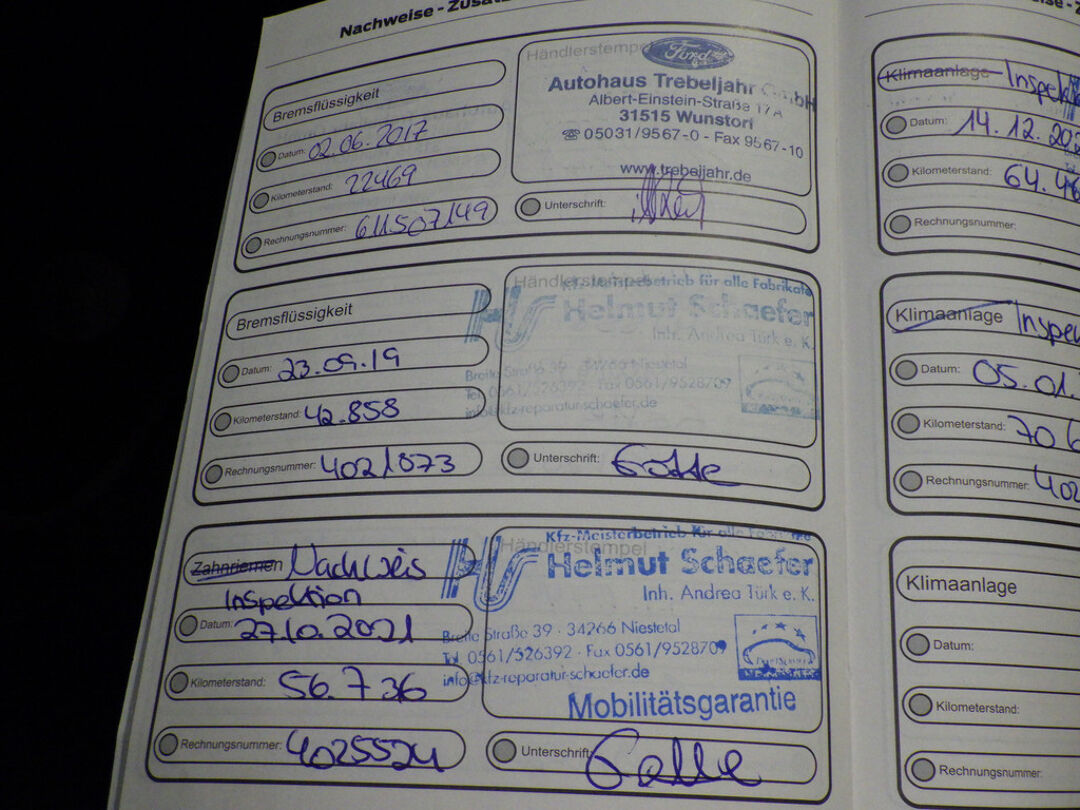 Nachweise - Zusatz
Bremsflüssigkeit
Datum: 02.06.2017
Kilometerstand: 22469
Rechnungsnummer: 611507149
Händlerstempel
Ford
Autohaus Trebeljahr GmbH
Albert-Einstein-Straße 17A
31515 Wunstorf
☎ 05031/9567-0 - Fax 9567-10
www.trebeljahr.de
Unterschrift:
Bremsflüssigkeit
Datum: 23.09.19
Kilometerstand: 42.858
Rechnungsnummer: 4021873
Händlerstempel
Kfz-Meisterbetrieb für alle Fabrikate
HS Helmut Schaefer
Inh. Andrea Türk e. K.
Breite Straße 39 · 34266 Niestetal
Tel. 0561/526392 · Fax 0561/9528709
info@kfz-reparatur-schaefer.de
Unterschrift:
Zahnriemen Nachweis
Inspektion
Datum: 27.10.2021
Kilometerstand: 56.736
Rechnungsnummer: 4025524
Händlerstempel
Kfz-Meisterbetrieb für alle Fabrikate
HS Helmut Schaefer
Inh. Andrea Türk e. K.
Breite Straße 39 · 34266 Niestetal
Tel. 0561/526392 · Fax 0561/9528709
info@kfz-reparatur-schaefer.de
Mobilitätsgarantie
Unterschrift:
Klimaanlage Inspek
Datum: 14.12.202
Kilometerstand: 64.46
Rechnungsnummer:
Klimaanlage Inspe
Datum: 05.01.
Kilometerstand: 706
Rechnungsnummer: 402
Klimaanlage
Datum:
Kilometerstand:
Rechnungsnummer: